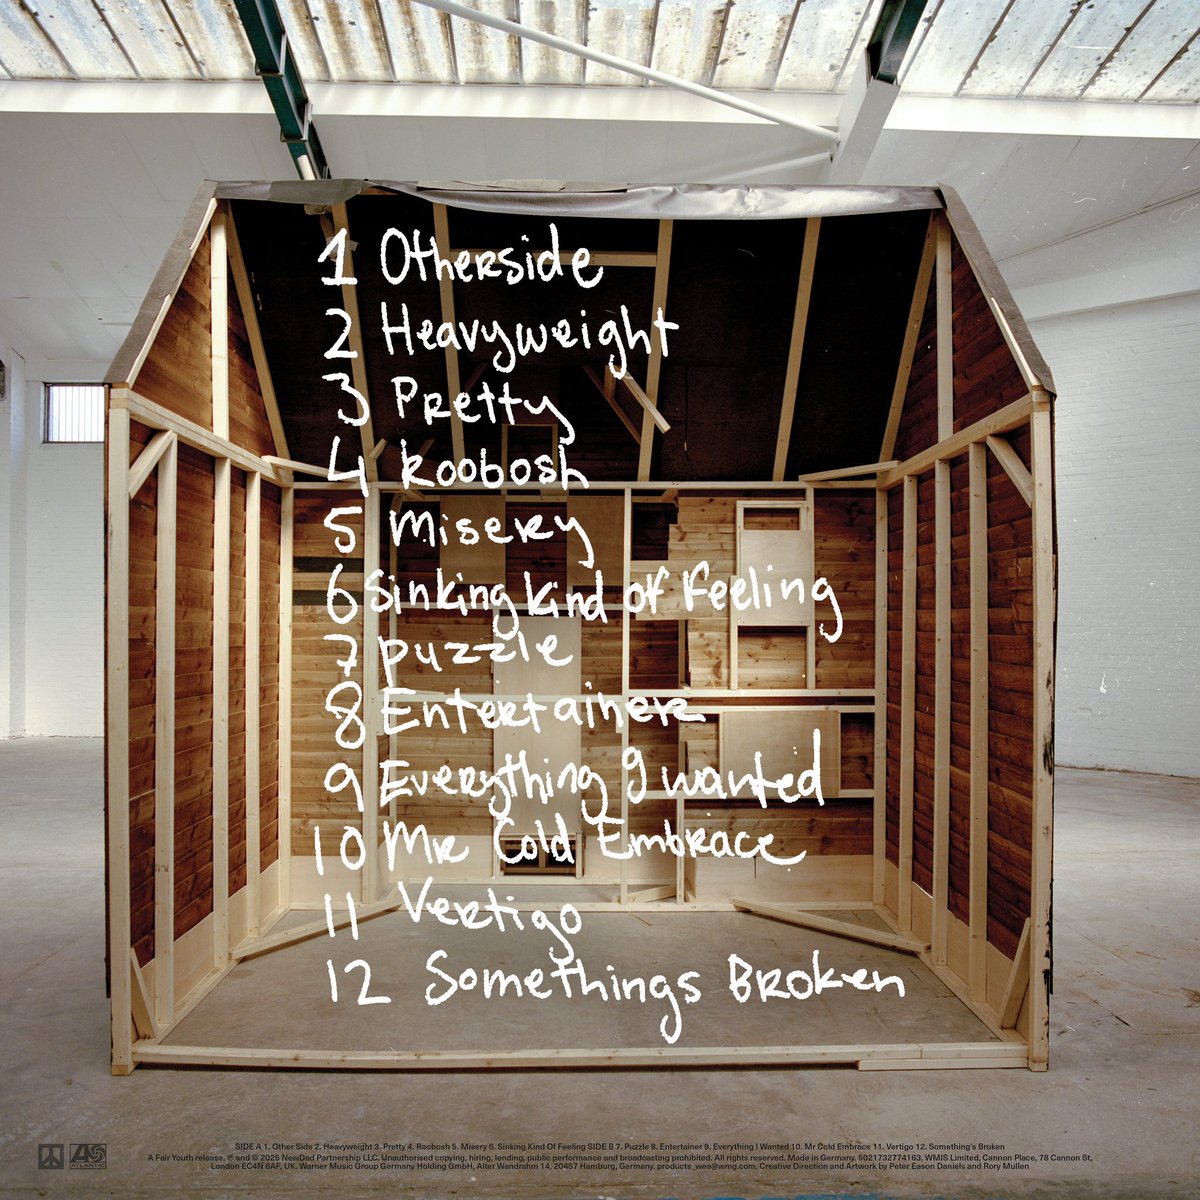 1 Otherside
2 Heavyweight
3 Pretty
4 Roobosh
5 Misery
6 Sinking Kind of Feeling
7 puzzle
8 Entertainer
9 Everything I wanted
10 Mr Cold Embrace
11 Vertigo
12 Somethings Broken
SIDE A 1. Other Side 2. Heavyweight 3. Pretty 4. Roobosh 5. Misery 6. Sinking Kind Of Feeling SIDE B 7. Puzzle 8. Entertainer 9. Everything I Wanted 10. Mr Cold Embrace 11. Vertigo 12. Something's Broken
A Fair Youth release, ℗ and © 2025 NewDad Partnership LLC. Unauthorised copying, hiring, lending, public performance and broadcasting prohibited. All rights reserved. Made in Germany. 5021732774163. WMIS Limited, Cannon Place, 78 Cannon St,
London EC4N 6AF, UK. Warner Music Group Germany Holding GmbH, Alter Wandrahm 14, 20457 Hamburg, Germany. products_wea@wmg.com. Creative Direction and Artwork by Peter Eason Daniels and Rory Mullen
ATLANTIC